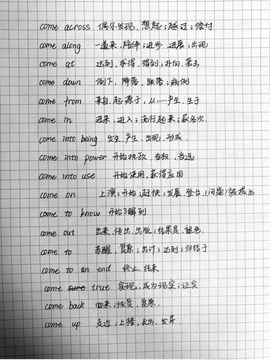 come across 偶尔发现,想起;越过;偿付
come along 一道来,陪伴;进步,进展;出现
come at 达到,求得,得到;扑向,袭击
come down 倒下;降落,跌落;病倒
come from 来自,起源于,从……产生,生于
come in 进来,进入;流行起来;获名次
come into being 发生,产生,出现,形成
come into power 开始执政,当权,当选
come into use 开始使用,获得应用
come on 上演;开始;赶快;发展;登台;(问题)被提出
come to know 开始了解到
come out 出来,传出,出版;结果是,
come to 苏醒,复原;共计;达到;归结于
come to an end 终止,结束
come true 实现,成为现实;证实
come back 回来;恢复,复原
come up 走近;上楼,长出,发芽